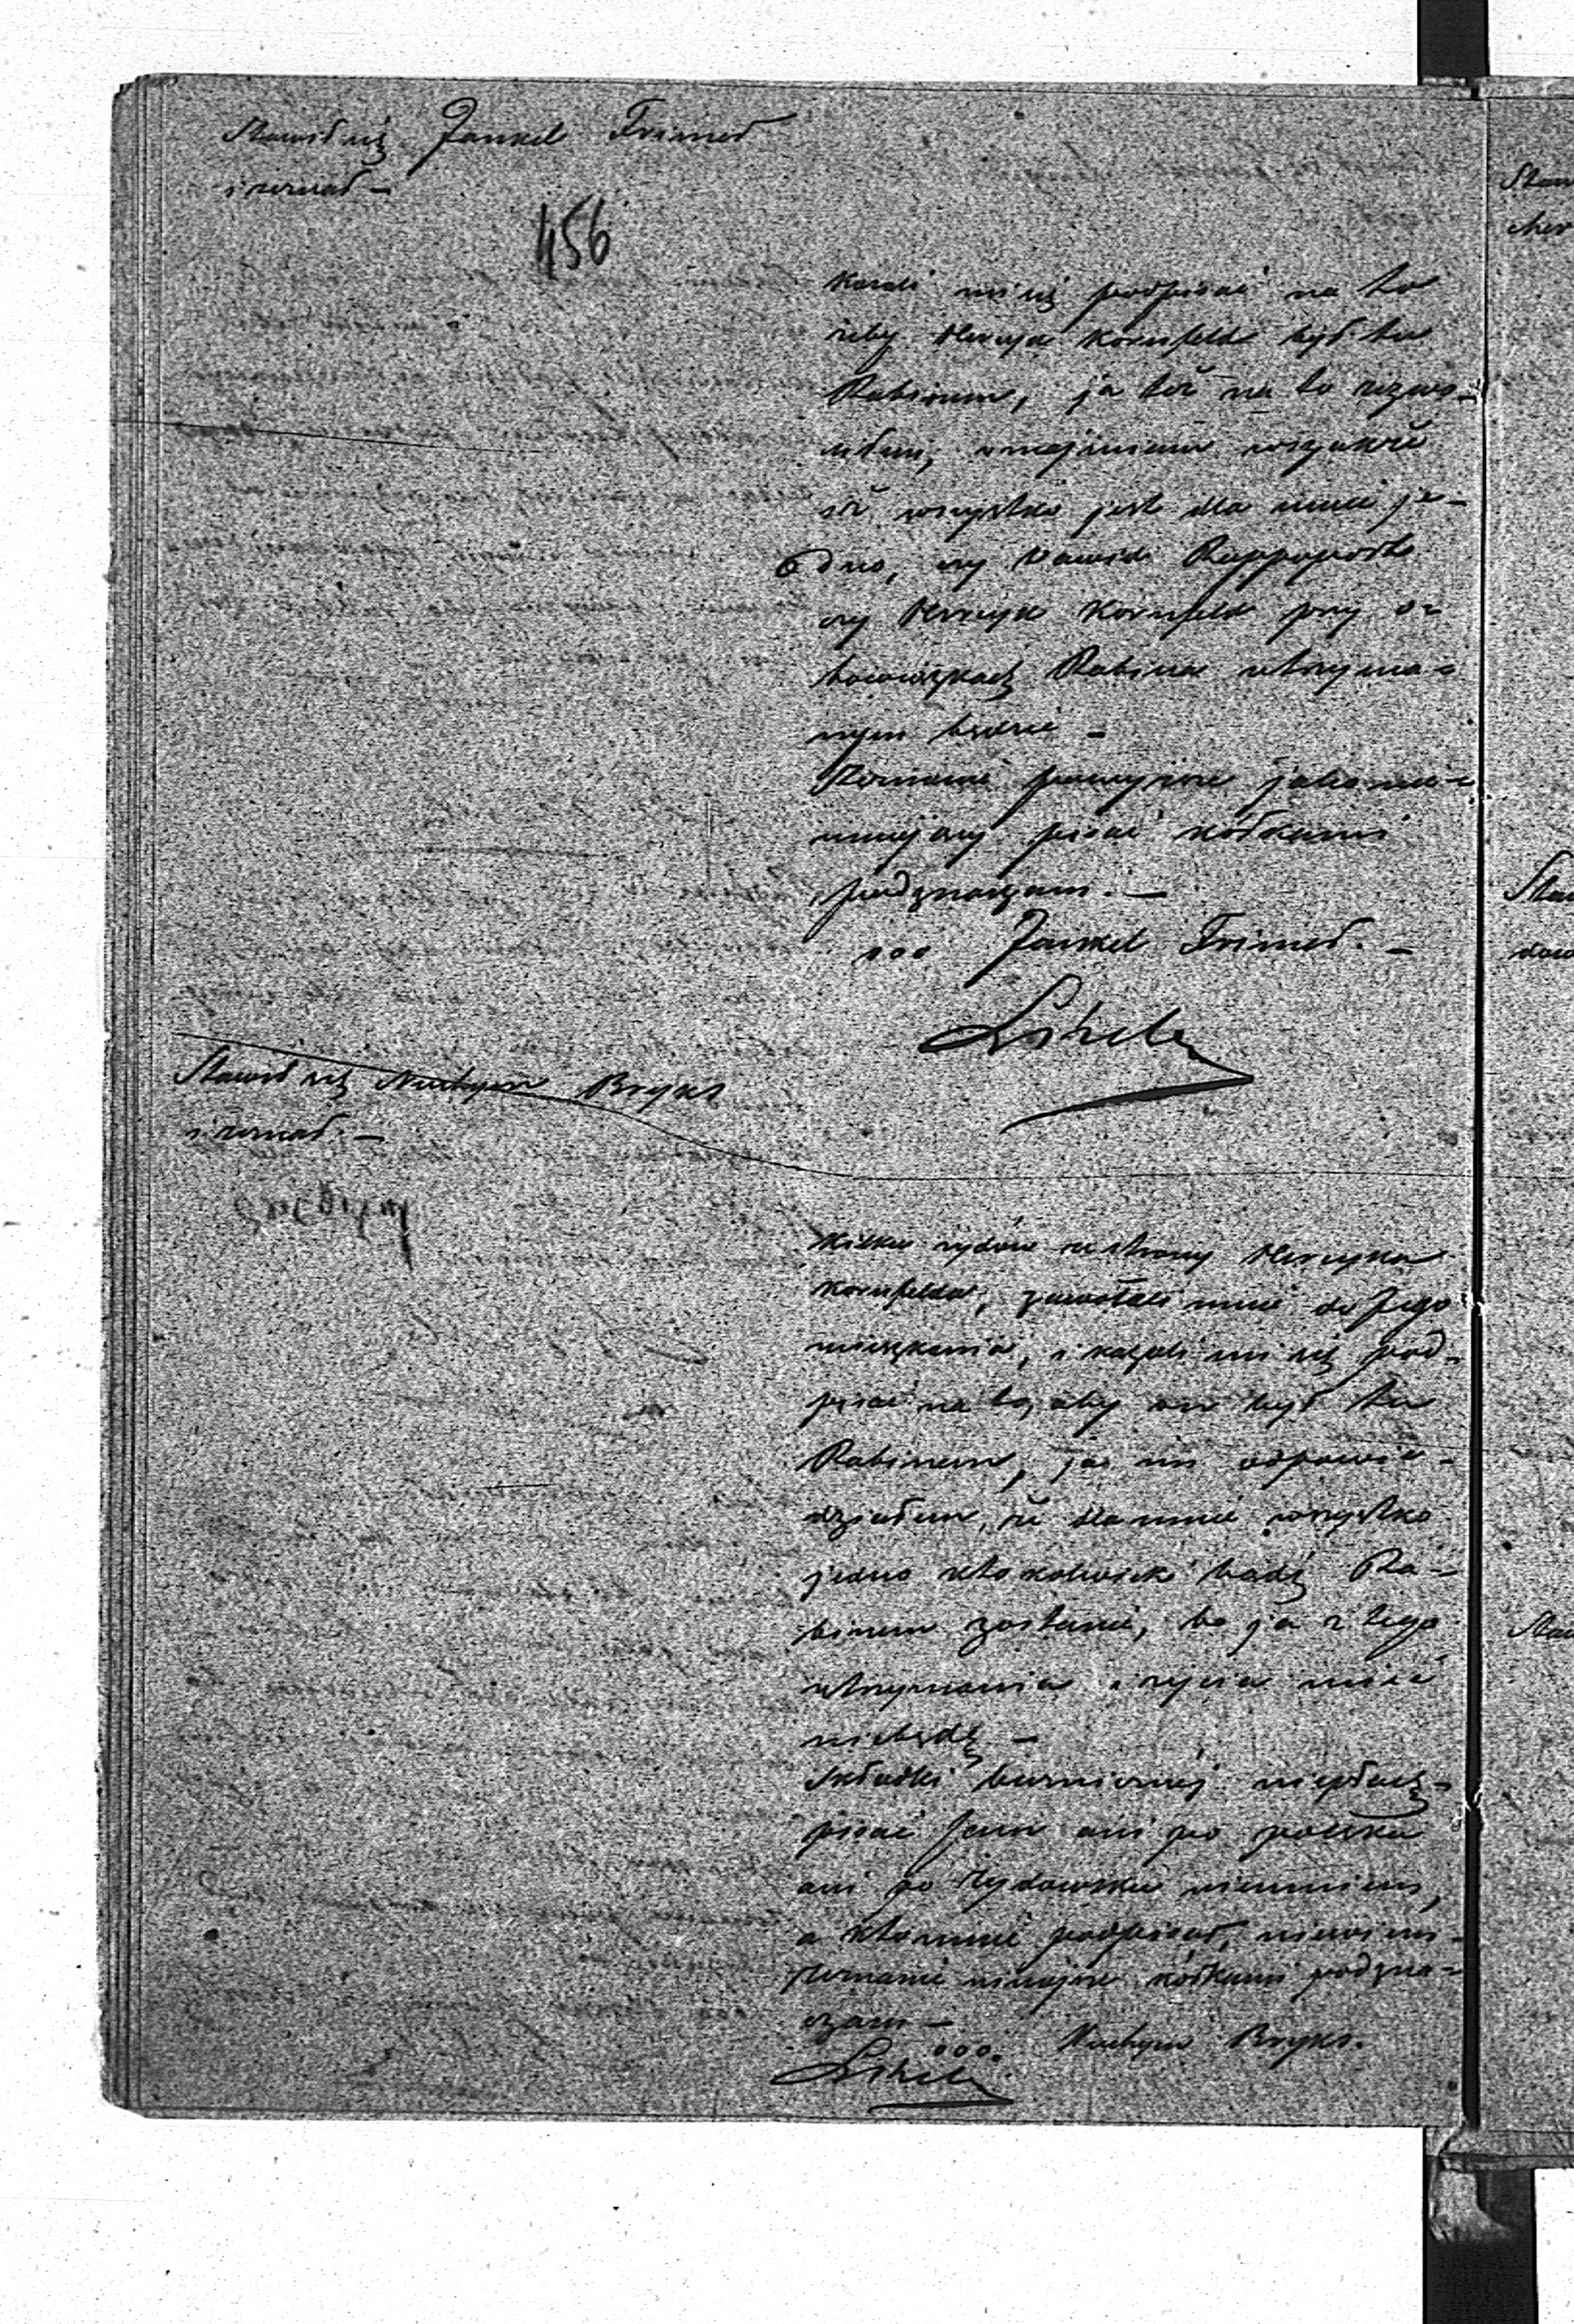 Stawił się Jankel Frimer
i zeznał –
456
Kazali mi się podpisać na to
żeby Hersyk Kornfeld był tu
Rabinem, ja też na to zezwo-
liłem, nadmieniam
że wszystko jest dla mnie je-
dno, czy Dawid Rappoport
czy Herszyk Kornfeld przy o-
bowiązkach Rabina utrzyma-
nym będzie –
Zeznanie powyższe jako nie-
umiejący pisać kółkami
podznaczam. –
ooo Jankel Frimer. –
Stawił się Nuchym Bryks
i zeznał. –
Kilku żydów ze strony Herszyka
Kornfelda, zawołali mnie do Jego
mieszkania, i kazali mi się pod-
pisać na to, aby on był tu
Rabinem, ja im odpowie-
działem, że dla mnie wszystko
jedno kto kolwiek bądź Ra-
binem zostanie, bo ja z tego
utrzymania i życia mieć
niebędę –
Składki bużnicznéj niepłacę –
pisać Jam ani po polsku
ani po żydowsku nieumiem,
a kto mnie podpisał, niewiem –
zeznanie niniejsze kółkami podzna-
czam –
ooo. Nuchym Bryks.